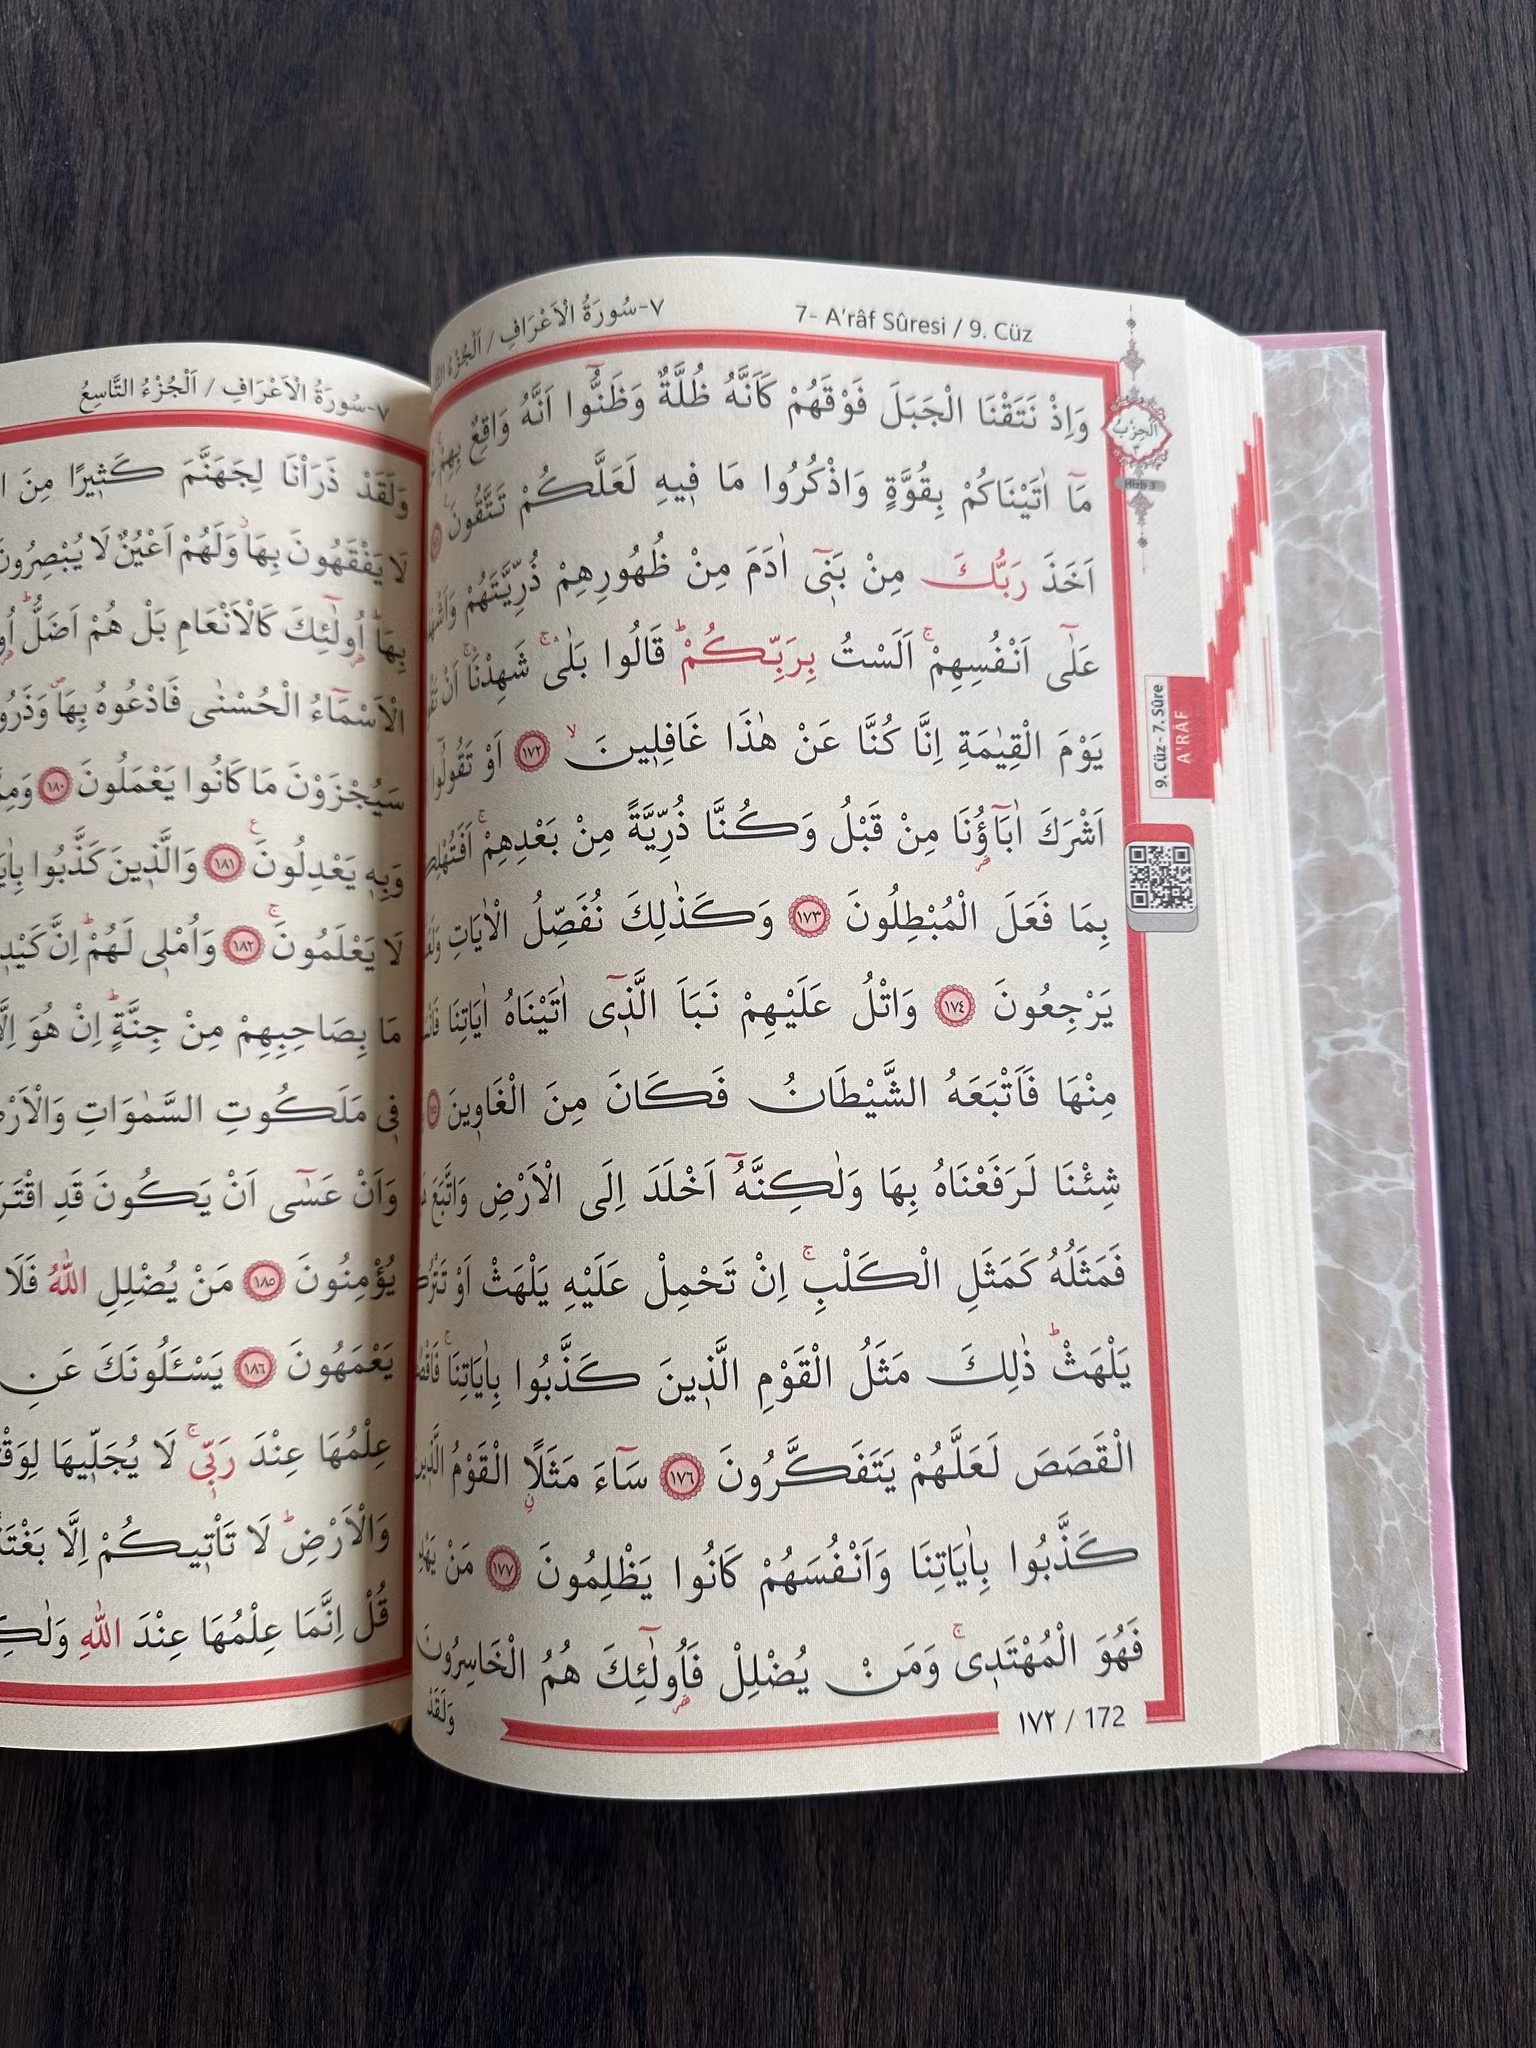 ٧-سُورَةُ الْاَعْرَافِ / اَلْجُزْءُ
7- A'râf Sûresi / 9. Cüz
وَاِذْ نَتَقْنَا الْجَبَلَ فَوْقَهُمْ كَاَنَّهُ ظُلَّةٌ وَظَنُّٓوا اَنَّهُ وَاقِعٌ بِهِمْۚ
مَٓا اٰتَيْنَاكُمْ بِقُوَّةٍ وَاذْكُرُوا مَا ف۪يهِ لَعَلَّكُمْ تَتَّقُونَ
اَخَذَ رَبُّكَ مِنْ بَن۪ٓي اٰدَمَ مِنْ ظُهُورِهِمْ ذُرِّيَّتَهُمْ
عَلٰٓى اَنْفُسِهِمْۚ اَلَسْتُ بِرَبِّكُمْۜ قَالُوا بَلٰىۚ شَهِدْنَاۚ اَنْ
يَوْمَ الْقِيٰمَةِ اِنَّا كُنَّا عَنْ هٰذَا غَافِل۪ينَۙ ١٧٢ اَوْ تَقُولُٓوا
اَشْرَكَ اٰبَٓاؤُ۬نَا مِنْ قَبْلُ وَكُنَّا ذُرِّيَّةً مِنْ بَعْدِهِمْۚ
بِمَا فَعَلَ الْمُبْطِلُونَ ١٧٣ وَكَذٰلِكَ نُفَصِّلُ الْاٰيَاتِ
يَرْجِعُونَ ١٧٤ وَاتْلُ عَلَيْهِمْ نَبَاَ الَّذ۪ٓي اٰتَيْنَاهُ اٰيَاتِنَا
مِنْهَا فَاَتْبَعَهُ الشَّيْطَانُ فَكَانَ مِنَ الْغَاو۪ينَ
شِئْنَا لَرَفَعْنَاهُ بِهَا وَلٰكِنَّهُٓ اَخْلَدَ اِلَى الْاَرْضِ وَاتَّبَعَ
فَمَثَلُهُ كَمَثَلِ الْكَلْبِۚ اِنْ تَحْمِلْ عَلَيْهِ يَلْهَثْ اَوْ
يَلْهَثْۜ ذٰلِكَ مَثَلُ الْقَوْمِ الَّذ۪ينَ كَذَّبُوا بِاٰيَاتِنَاۚ
الْقَصَصَ لَعَلَّهُمْ يَتَفَكَّرُونَ ١٧٦ سَٓاءَ مَثَلًاۨ الْقَوْمُ الَّذ۪ينَ
كَذَّبُوا بِاٰيَاتِنَا وَاَنْفُسَهُمْ كَانُوا يَظْلِمُونَ ١٧٧ مَنْ
فَهُوَ الْمُهْتَد۪يۚ وَمَنْ يُضْلِلْ فَاُو۬لٰٓئِكَ هُمُ الْخَاسِرُونَ
وَلَقَدْ
١٧٢ / 172
اَلْحِزْبُ
Hizb 3
9. Cüz - 7. Sûre
A'RÂF
٧-سُورَةُ الْاَعْرَافِ / اَلْجُزْءُ التَّاسِعُ
وَلَقَدْ ذَرَاْنَا لِجَهَنَّمَ كَث۪يرًا مِنَ
لَا يَفْقَهُونَ بِهَاۘ وَلَهُمْ اَعْيُنٌ لَا يُبْصِرُونَ
بِهَاۜ اُو۬لٰٓئِكَ كَالْاَنْعَامِ بَلْ هُمْ اَضَلُّۜ
الْاَسْمَٓاءُ الْحُسْنٰى فَادْعُوهُ بِهَاۖ وَذَرُوا
سَيُجْزَوْنَ مَا كَانُوا يَعْمَلُونَ ١٨٠
وَبِه۪ يَعْدِلُونَ۟ ١٨١ وَالَّذ۪ينَ كَذَّبُوا
لَا يَعْلَمُونَۚ ١٨٢ وَاُمْل۪ي لَهُمْۜ اِنَّ
مَا بِصَاحِبِهِمْ مِنْ جِنَّةٍۜ اِنْ هُوَ
ف۪ي مَلَكُوتِ السَّمٰوَاتِ
وَاَنْ عَسٰٓى اَنْ يَكُونَ قَدِ
يُؤْمِنُونَ ١٨٥ مَنْ يُضْلِلِ اللّٰهُ فَلَا
يَعْمَهُونَ ١٨٦ يَسْـَٔلُونَكَ عَنِ
عِلْمُهَا عِنْدَ رَبّ۪يۚ لَا يُجَلّ۪يهَا
وَالْاَرْضِۜ لَا تَأْت۪يكُمْ اِلَّا
قُلْ اِنَّمَا عِلْمُهَا عِنْدَ اللّٰهِ